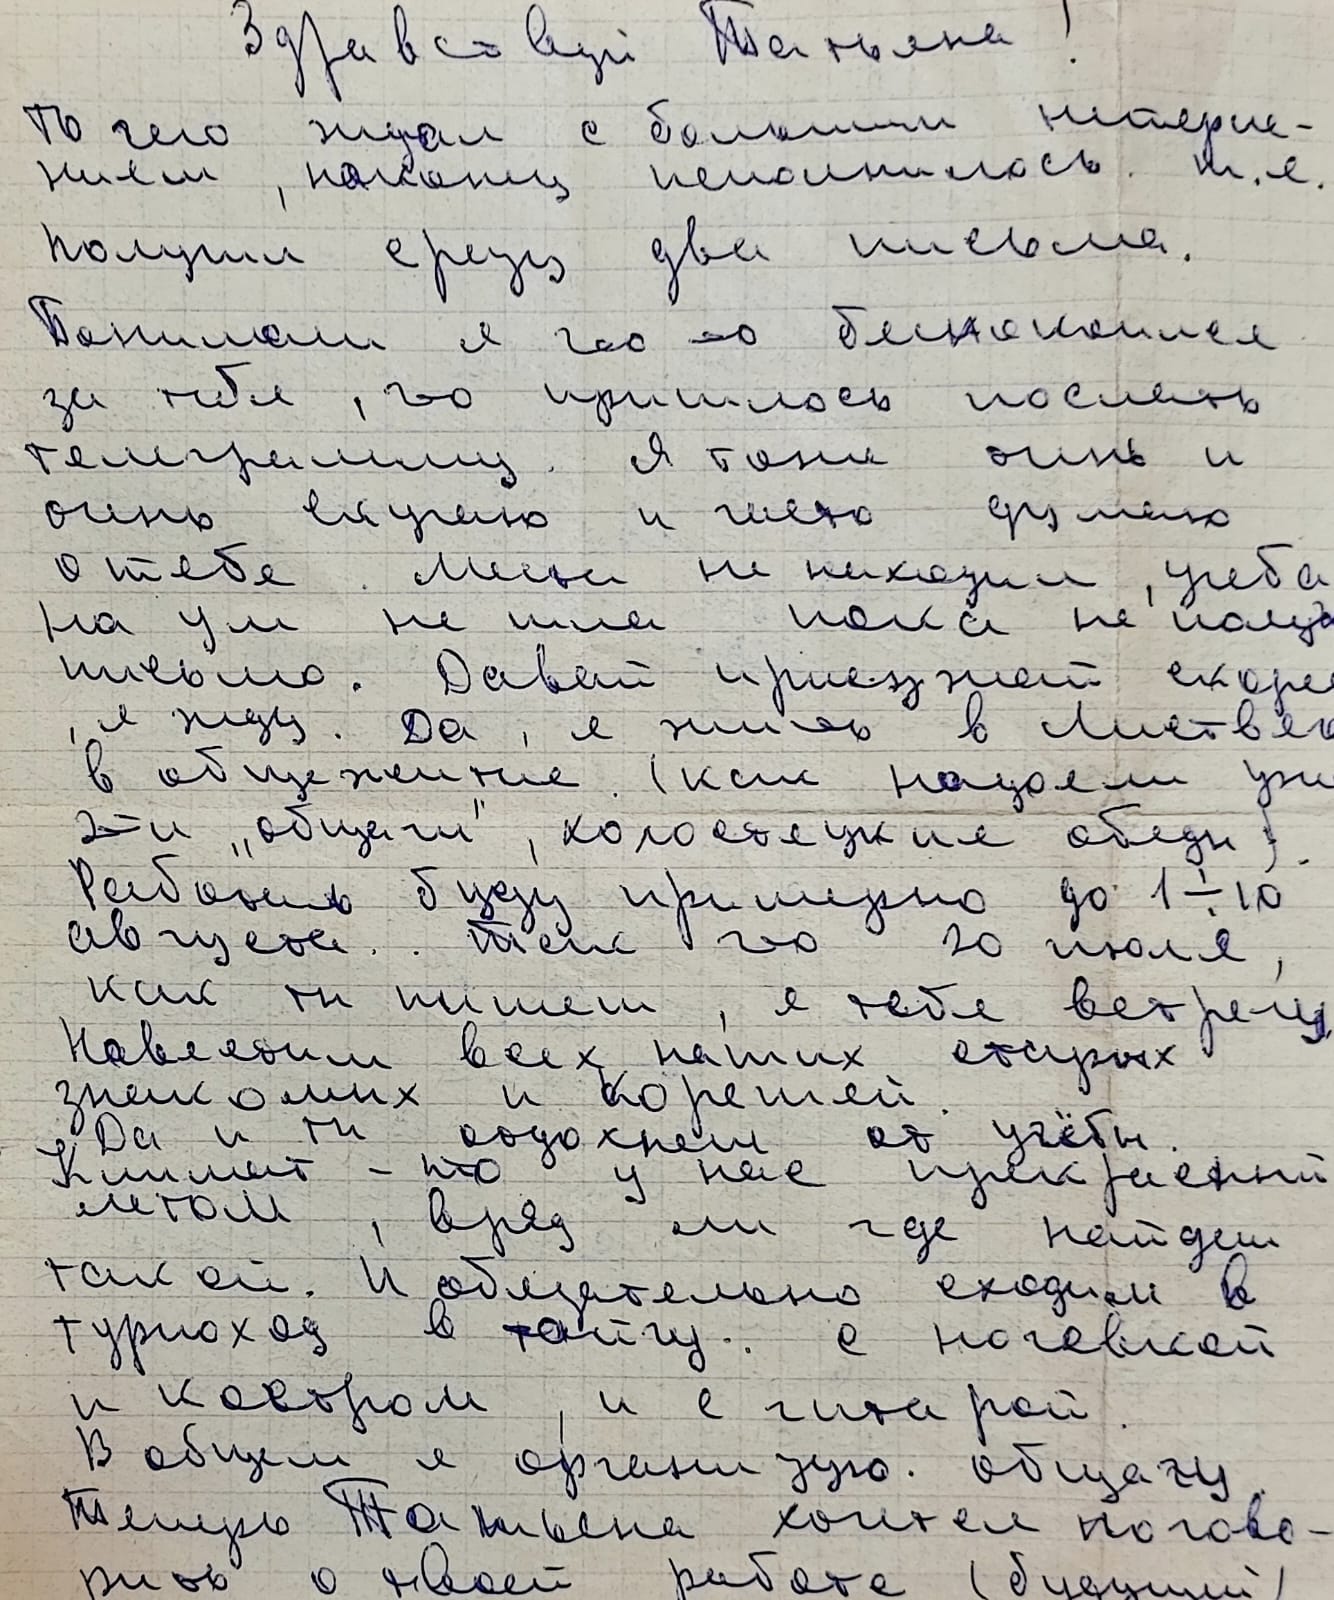 Здравствуй Татьяна!
То чего ждал с большим нетерпе-
нием, наконец исполнилось. т.е.
получил сразу два письма.
Понимаеш я что-то беспокоился
за тебя, что пришлось послать
телеграмму. Я тоже очень и
очень скучаю и часто думаю
о тебе. Места не находил, учеба
на ум не шла пока не получ
письмо. Давай приезжай скорее
, я жду. Да, я жить в Листвяг
в общежитие. (как надоели уже
эти „общаги", холостяцкие обеды).
Работать буду примерно до 1÷10
августа.. Так что 20 июля,
как ты пишеш, я тебя встречу.
Навестим всех наших старых
знакомых и корешей.
Да и ты отдохнеш от учёбы.
Климат - то у нас прекрасный
летом, вряд ли где найдеш
такой. И обязательно сходим в
турпоход в тайгу. с ночевкой
и костром, и с гитарой.
В общем я организую. общагу.
Теперь Татьяна хотел погово-
рить о твоей работе (будущий)